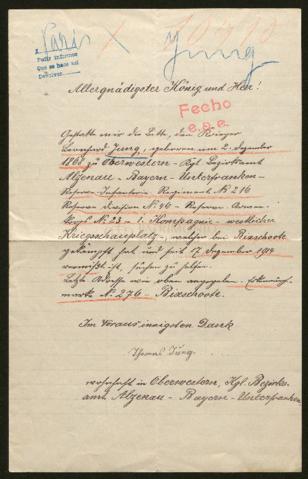 Paris
X
Jung
A
Pedir informes
Que se hace así
Decirles
Allergnädigster König und Herr!
Fecho
Gestatte mir die Bitte, den Krieger
Leonhard Jung, geboren am 2. Dezember
zu Oberwestern - Kgl. Bezirksamt
Alzenau - Bayern - Unterfranken -
Reserve-Infanterie-Regiment Nº 216
Reserve Division Nº 46 - Reserve-Armee-
Korps Nº 23 - 1. Kompagnie - westlicher
Kriegsschauplatz - welcher bei Bixschoote
gekämpft hat und seit 17. Dezember 1914
vermißt ist, suchen zu helfen.
Letzte Adresse wie oben angegeben. Erkennungs-
marke Nº 276 - Bixschoote.
Im Voraus innigsten Dank
Thomas Jung.
wohnhaft in Oberwestern, Kgl. Bezirks-
amt Alzenau - Bayern - Unterfranken